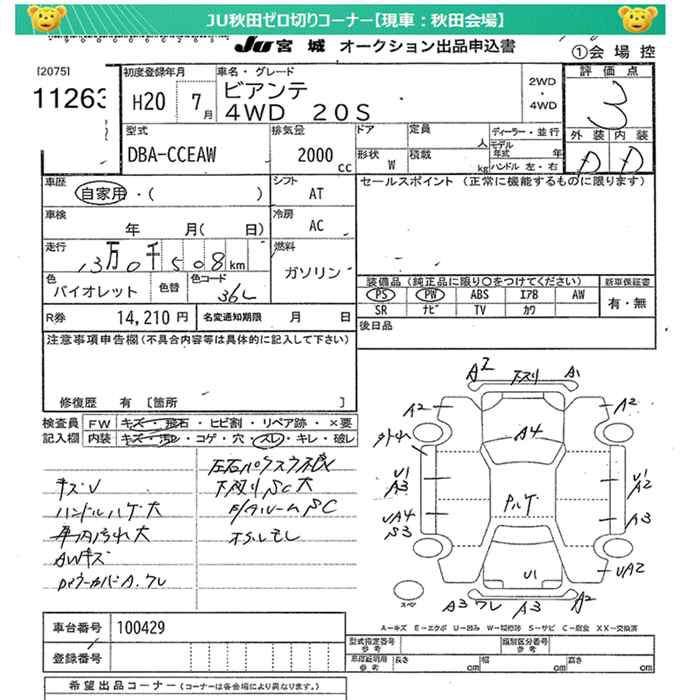 JU秋田ゼロ切りコーナー【現車：秋田会場】
JU 宮城 オークション出品申込書
①会場控
[2075]
11263
初度登録年月
H20 7月
車名・グレード
ビアンテ
4WD 20S
2WD
・
4WD
評価点
3
外装 内装
D D
型式
DBA-CCEAW
排気量
2000 cc
ドア
形状 W
定員 人
積載 kg
ディーラー・並行
モデル年式 年
ハンドル 左・右
車歴
自家用・( )
シフト
AT
セールスポイント (正常に機能するものに限ります)
車検
年 月( 日)
冷房
AC
走行
13万0千508km
燃料
ガソリン
色
バイオレット
色替
色コード
36L
装備品(純正品に限り○をつけてください)
新車保証書
PS PW ABS エアB AW
SR ナビ TV カワ
有・無
R券 14,210円
名変通知期限 月 日
後日品
注意事項申告欄(不具合内容等は具体的に記入して下さい)
修復歴 有 [箇所 ]
検査員
記入欄
FW キズ・飛石・ヒビ割・リペア跡・×要
内装 キズ・汚レ・コゲ・穴・スレ・キレ・破レ
キズV
ハンドルハゲ大
車内汚れ大
AWキズ
下廻りSC大
A2 下スリ A1
A2 A2
A4
U1
A3
U1
A2
UA4
S3
A3
UA2
U1
A3 ワレ A3 A2
スペア
A－キズ E－エクボ U－凹み W－補修跡 S－サビ C－腐食 XX－交換済
車台番号 100429
登録番号
型式指定番号
参考
類別区分番号
参考
車庫証明用
参考
長さ cm
幅 cm
高さ cm
希望出品コーナー (コーナーは各会場により異なります。)